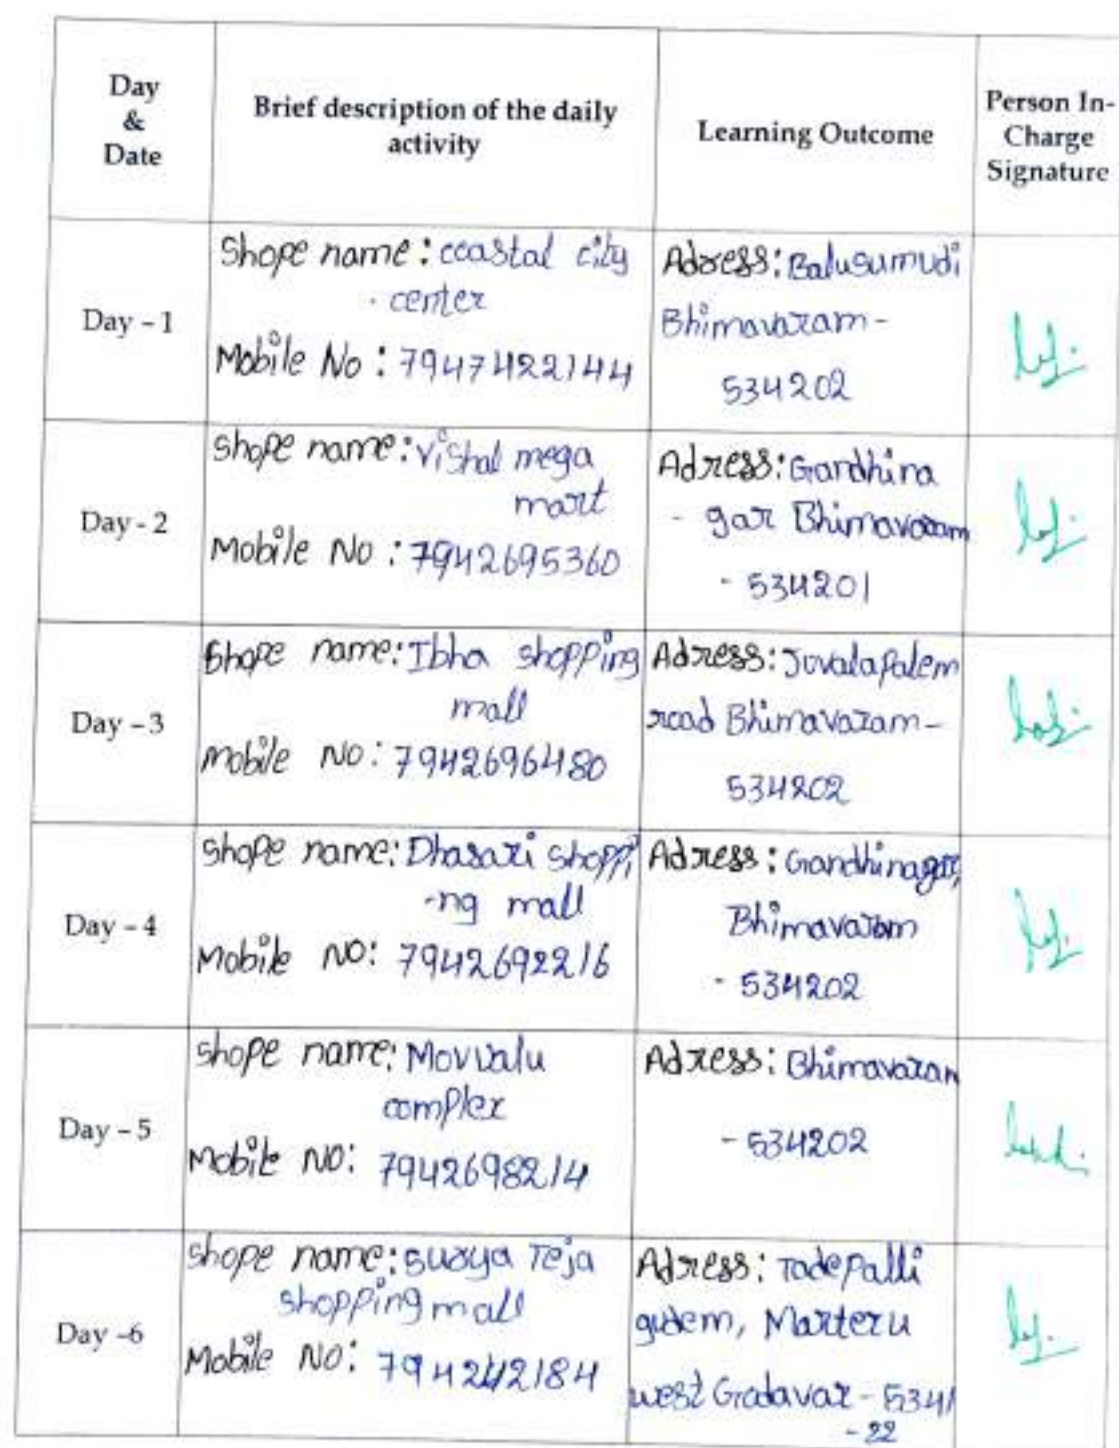 Day
&
Date
Brief description of the daily
activity
Learning Outcome
Person In-
Charge
Signature
Day - 1
Shope name : coastal city
center
Mobile No : 7947422144
Adress: Balusumudi
Bhimavaram -
534202
Day - 2
shope name: Vishal mega
mart
Mobile No : 7942695360
Adress: Gandhina
- gar Bhimavaram
- 534201
Day - 3
Shope name: Ibha shopping
mall
Mobile No: 7942696480
Adress: Juvalapalem
road Bhimavaram -
534202
Day - 4
shope name: Dhasari shoppi
-ng mall
Mobile No: 7942692216
Adress: Gandhinagar,
Bhimavaram
- 534202
Day - 5
shope name: Movvalu
complex
Mobile No: 7942698214
Adress: Bhimavaram
- 534202
Day -6
shope name: Surya Teja
shopping mall
Mobile No:
Adress: Tadepalli
gudem, Marteru
west Godavar - 5341
- 22